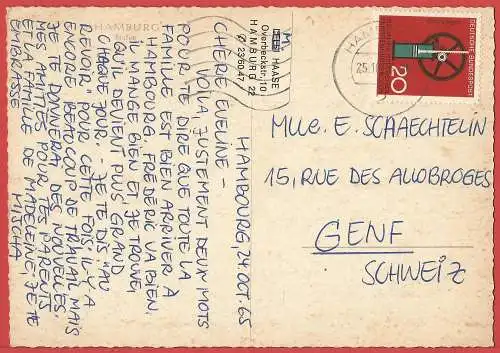 HAMBURG
M. HAASE
Overbeckstr. 10
HAMBURG 22
Ø 23 60 47
HAMBOURG, 24. OCT. 65
CHÈRE EVELINE -
VOILÀ JUSTEMENT DEUX MOTS
POUR TE DIRE QUE TOUTE LA
FAMILLE EST BIEN ARRIVER À
HAMBOURG. FRÉDÉRIC VA BIEN,
IL MANGE BIEN ET JE TROUVE
QU'IL DEVIENT PLUS GRAND
CHAQUE JOUR. - JE TE DIS "AU
REVOIR" POUR CETTE FOIS, IL Y A
ENCORE BEAUCOUP DE TRAVAIL MAIS
JE TE DONNERAI DES NOUVELLES.
MES AMITIÉS POUR TES PARENTS
ET LA FAMILLE DE MADELEINE, JE TE
EMBRASSE MISCHA
HAM
25.10
DEUTSCHE BUNDESPOST
20
Mlle. E. SCHAECHTELIN
15, RUE DES ALLOBROGES
GENF
SCHWEIZ